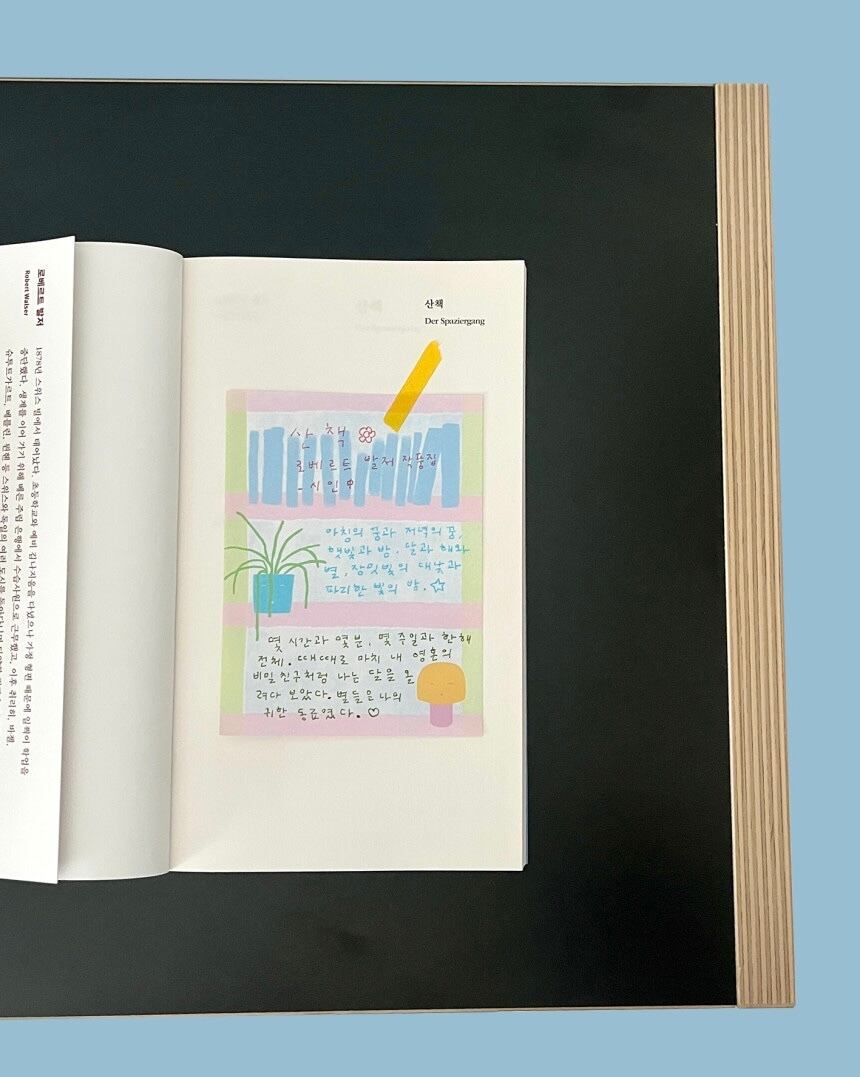 로베르트 발저
Robert Walser
1878년 스위스 빌에서 태어났다. 초등학교와 예비 김나지움을 다녔으나 가정 형편 때문에 일찍이 학업을
중단했다. 생계를 이어 가기 위해 베른 주립 은행에서 수습사원으로 근무했고, 이후 취리히, 바젤,
슈투트가르트, 베를린, 뮌헨 등 스위스와 독일의 여러 도시를
산책
Der Spaziergang
산책
로베르트 발저 작품집
- 시인 中
아침의 꿈과 저녁의 꿈,
햇빛과 밤. 달과 해와
별, 장밋빛의 대낮과
파리한 빛의 밤. ☆
몇 시간과 몇분, 몇 주일과 한해
전체. 때때로 마치 내 영혼의
비밀 친구처럼 나는 달을 올
려다 보았다. 별들은 나의
귀한 동료였다. ♡